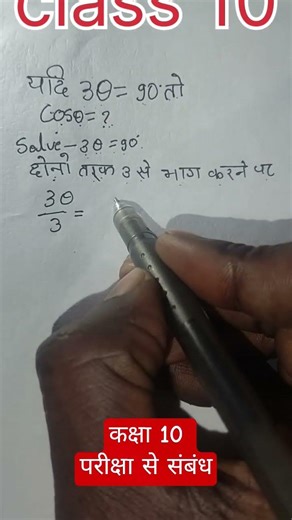 Class 10
यदि 3θ = 90° तो
Cosθ = ?
Salve - 3θ = 90°
दोनो तरफ 3 से भाग करने पर
3θ/3 =
कक्षा 10
परीक्षा से संबंध